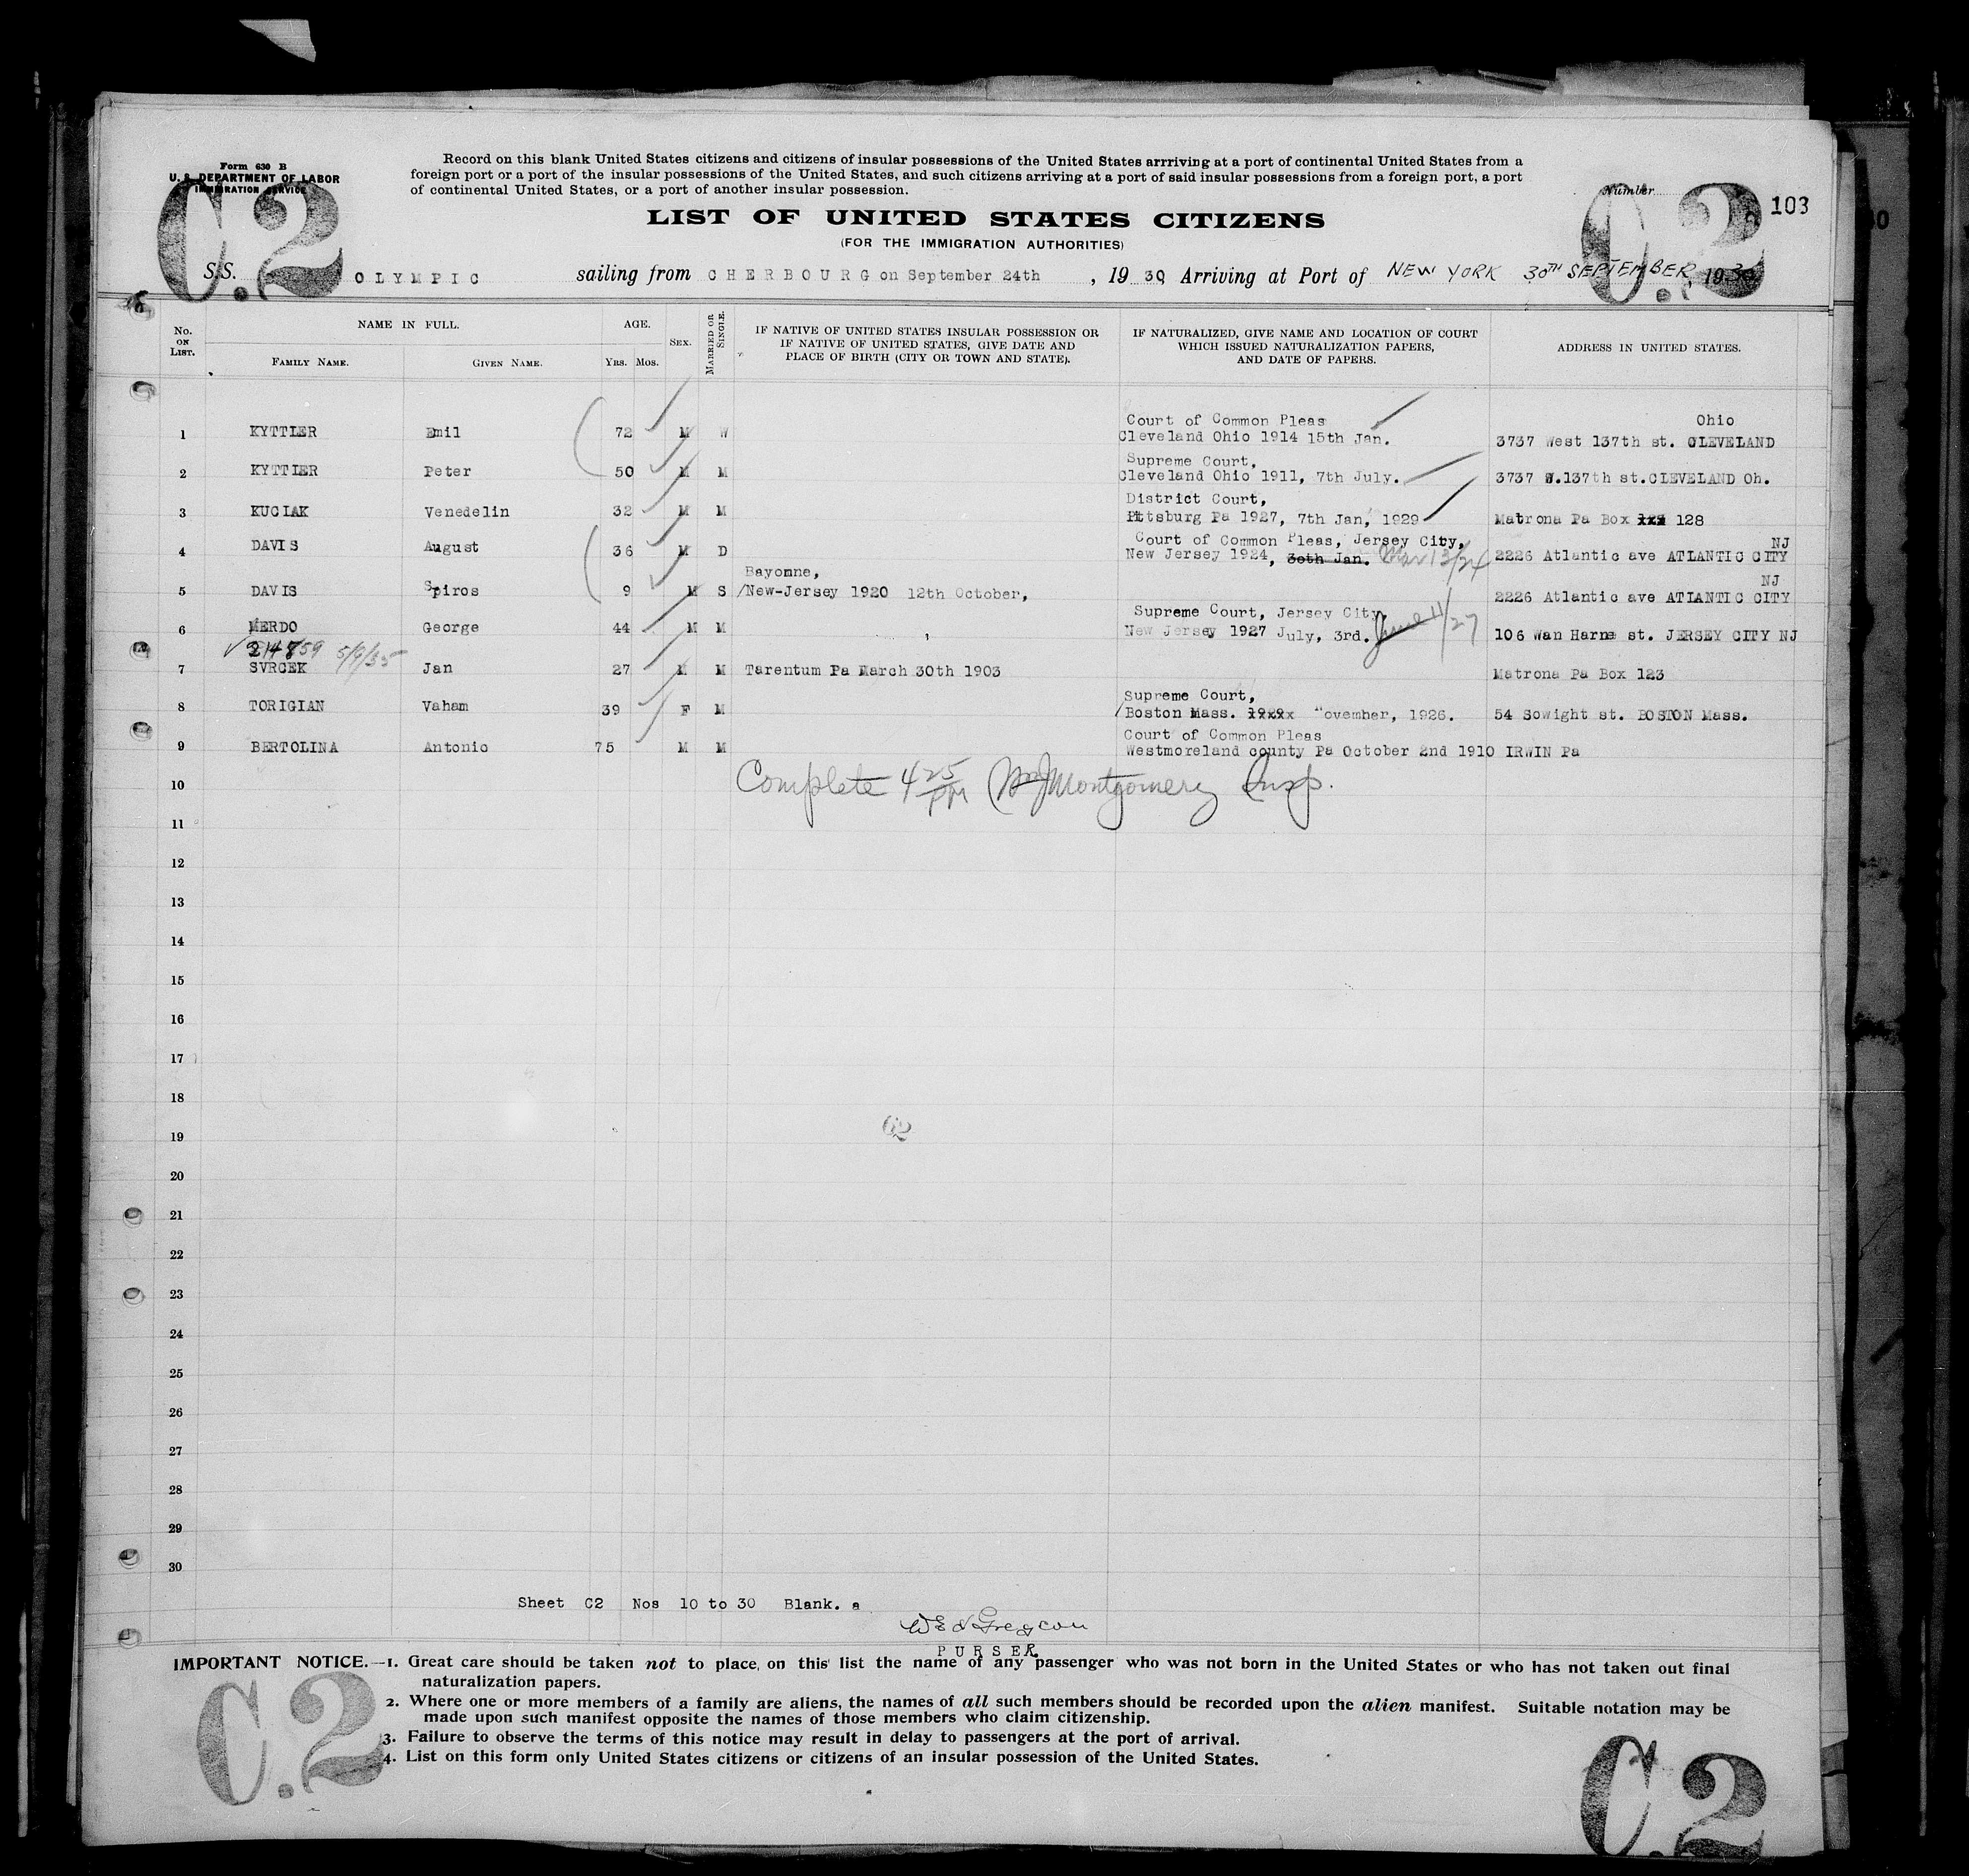 Form 630 B
U. S. DEPARTMENT OF LABOR
IMMIGRATION SERVICE
C.2
Record on this blank United States citizens and citizens of insular possessions of the United States arrriving at a port of continental United States from a
foreign port or a port of the insular possessions of the United States, and such citizens arriving at a port of said insular possessions from a foreign port, a port
of continental United States, or a port of another insular possession.
Number
C.2
103
LIST OF UNITED STATES CITIZENS
(FOR THE IMMIGRATION AUTHORITIES)
S.S. OLYMPIC sailing from CHERBOURG on September 24th , 19 30, Arriving at Port of NEW YORK 30TH SEPTEMBER, 1930
No. ON LIST.
NAME IN FULL.
FAMILY NAME.
GIVEN NAME.
AGE.
YRS. MOS.
SEX.
MARRIED OR SINGLE.
IF NATIVE OF UNITED STATES INSULAR POSSESSION OR
IF NATIVE OF UNITED STATES, GIVE DATE AND
PLACE OF BIRTH (CITY OR TOWN AND STATE).
IF NATURALIZED, GIVE NAME AND LOCATION OF COURT
WHICH ISSUED NATURALIZATION PAPERS,
AND DATE OF PAPERS.
ADDRESS IN UNITED STATES.
Court of Common Pleas Ohio
1 KYTTLER Emil 72 M W Cleveland Ohio 1914 15th Jan. 3737 West 137th st. CLEVELAND
Supreme Court,
2 KYTTLER Peter 50 M M Cleveland Ohio 1911, 7th July. 3737 W.137th st.CLEVELAND Oh.
District Court,
3 KUCIAK Venedelin 32 M M Pittsburg Pa 1927, 7th Jan, 1929 Matrona Pa Box 128
Court of Common Pleas, Jersey City, NJ
4 DAVIS August 36 M D New Jersey 1924, 30th Jan. Mar 13/24 2226 Atlantic ave ATLANTIC CITY
Bayonne, NJ
5 DAVIS Spiros 9 M S /New-Jersey 1920 12th October, 2226 Atlantic ave ATLANTIC CITY
Supreme Court, Jersey City,
6 MERDO George 44 M M New Jersey 1927 July, 3rd. June 11/27 106 Wan Harne st. JERSEY CITY NJ
5/9/35
7 SVRCEK Jan 27 M M Tarentum Pa March 30th 1903 Matrona Pa Box 123
Supreme Court,
8 TORIGIAN Vaham 39 F M /Boston Mass. November, 1926. 54 Sowight st. BOSTON Mass.
Court of Common Pleas
9 BERTOLINA Antonio 75 M M Westmoreland county Pa October 2nd 1910 IRWIN Pa
10 Complete 4 25 PM Wm J Montgomery Insp.
11
12
13
14
15
16
17
18
19 62
20
21
22
23
24
25
26
27
28
29
30
Sheet C2 Nos 10 to 30 Blank.
PURSER
IMPORTANT NOTICE.—1. Great care should be taken not to place, on this list the name of any passenger who was not born in the United States or who has not taken out final
naturalization papers.
2. Where one or more members of a family are aliens, the names of all such members should be recorded upon the alien manifest. Suitable notation may be
made upon such manifest opposite the names of those members who claim citizenship.
3. Failure to observe the terms of this notice may result in delay to passengers at the port of arrival.
4. List on this form only United States citizens or citizens of an insular possession of the United States.
C.2
C.2